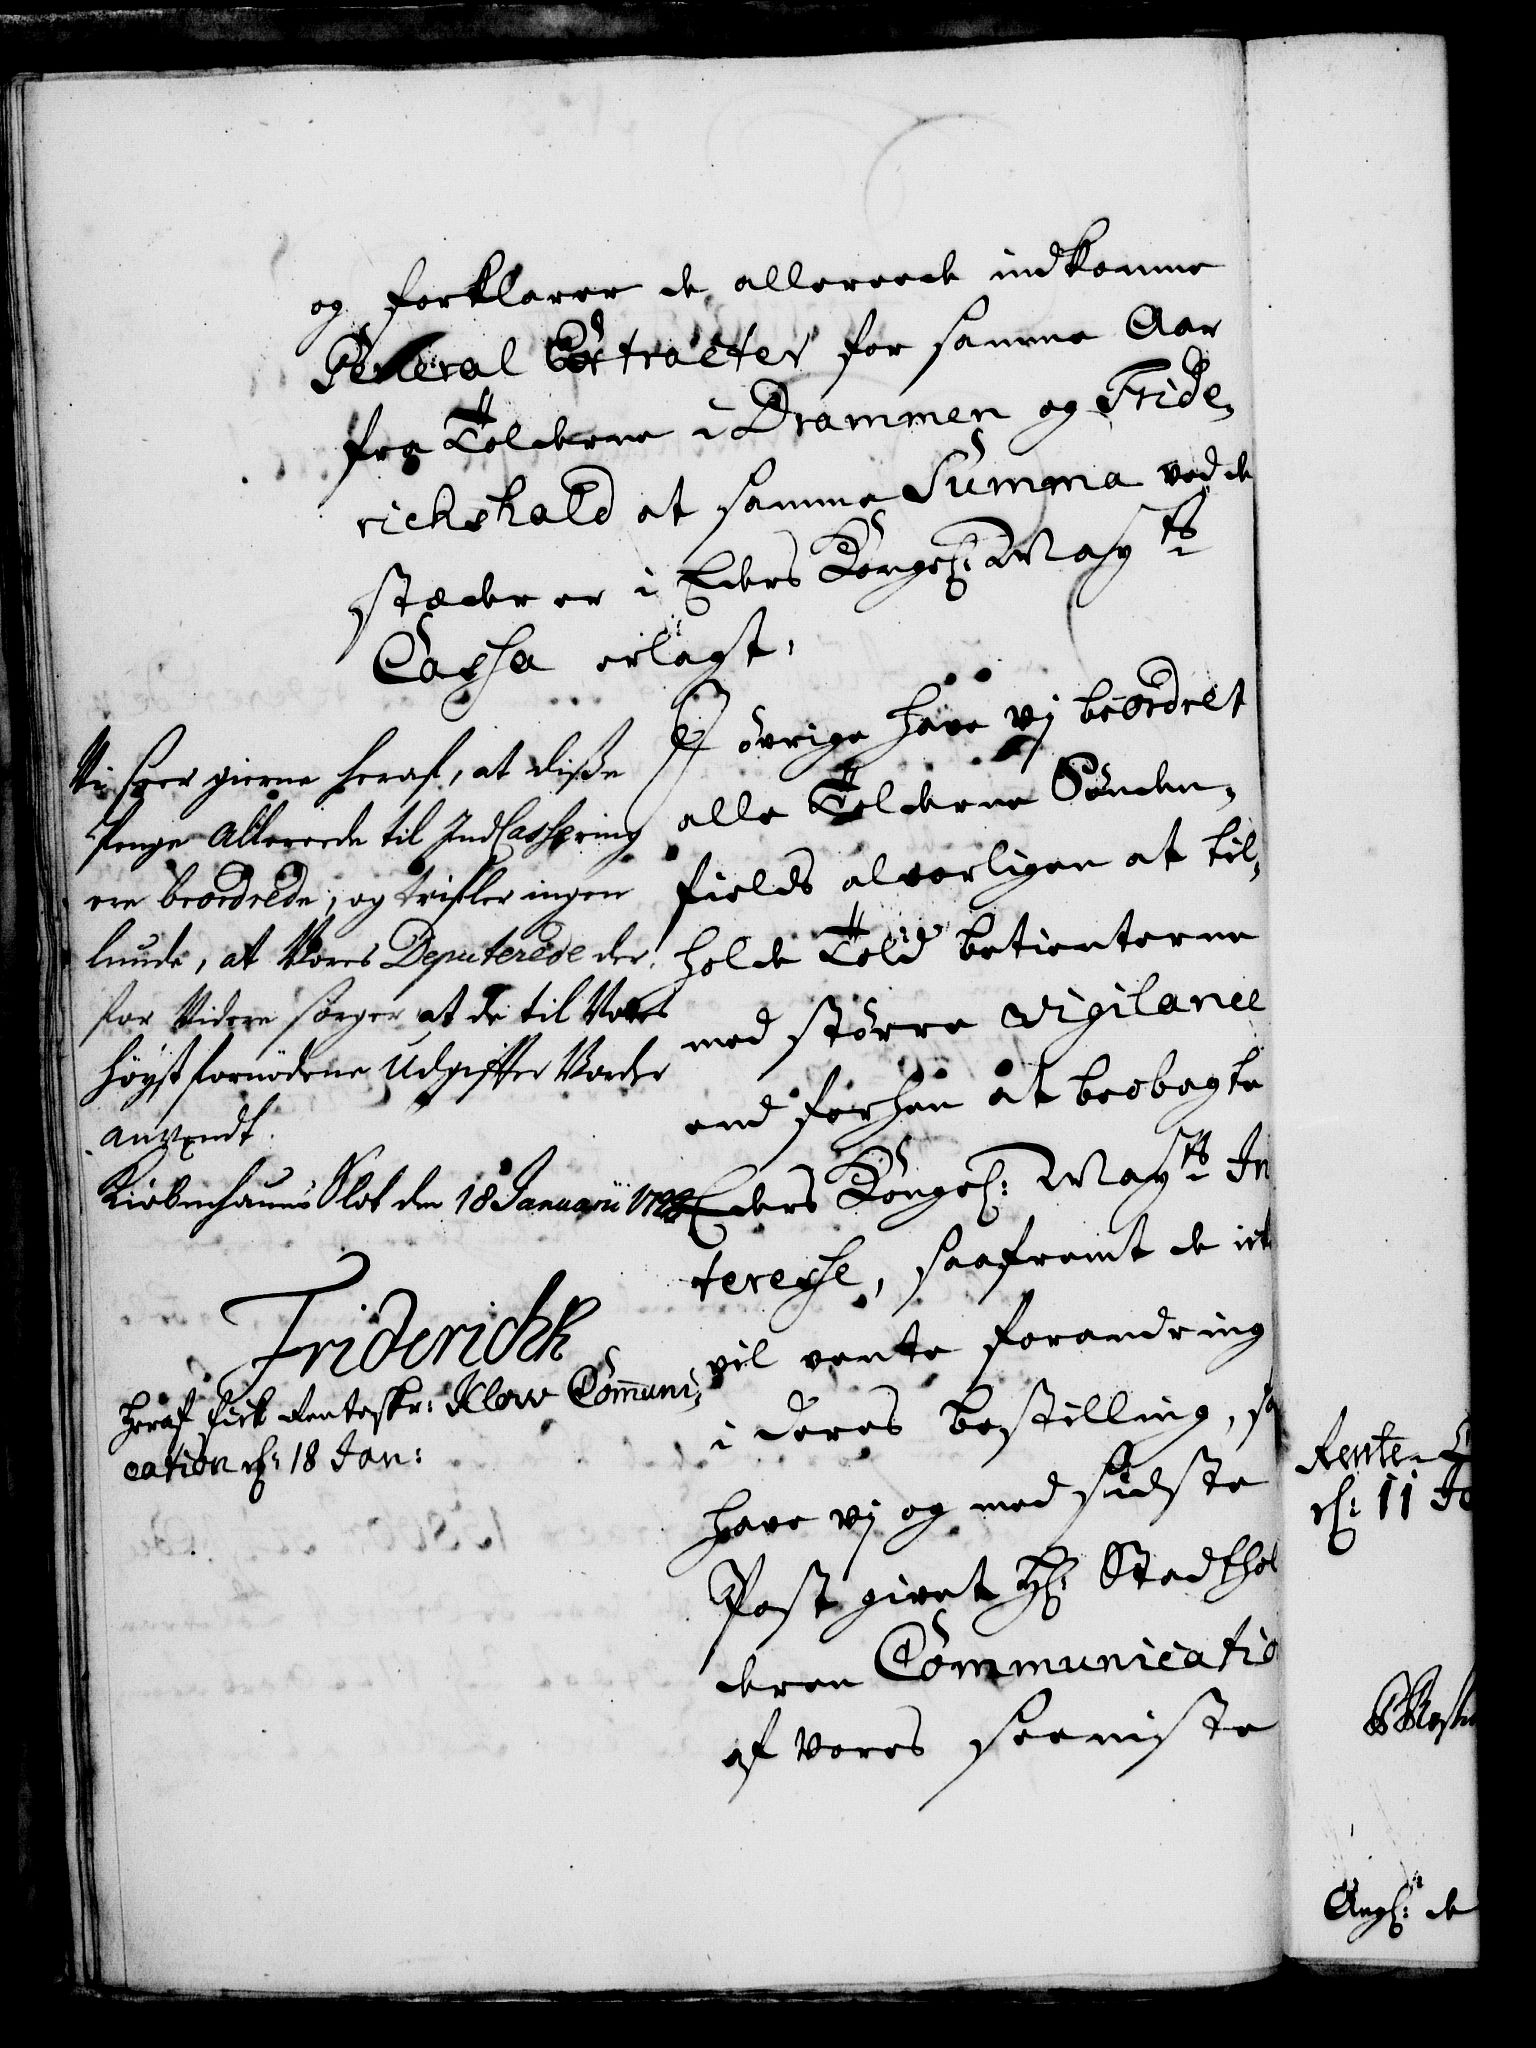 og forklarer de allereede indkomne
General Extracter for samme Aar
fra Tolderne i Drammen og Fride-
richshald at samme Summa ved de
stæder er i Eders Kongel: May:ts
Cassa erlagt.
I övrige have vj beordret
alle Tolderne Sönden-
fields alvorligen at til-
holde Told betienterne
med större vigilance
end forhen at beobagte
Eders Kongel: May:ts In
teresse, saafremt de ick
vil vente forandring
i deres bestilling, sa
have vj og med sidste
Post givet Hr: Stadthol
deren Communicatio
af vores seeniste
Vi seer gierne heraf, at diße
Penge allereede til IndCassering
ere beordrede, og tvifler ingen
lunde, at Vores Deputerede der
for Videre sörger at de til Vores
höyst fornödene Udgifter Vorder
anvendt.
Kiöbenhauns Slot den 18 Januarii 1722
Friderich R
Heraf fick Renteskr: Klow Com̄uni-
cation d: 18 Jan:
Rente-
d: 11 Ja
Angl: de